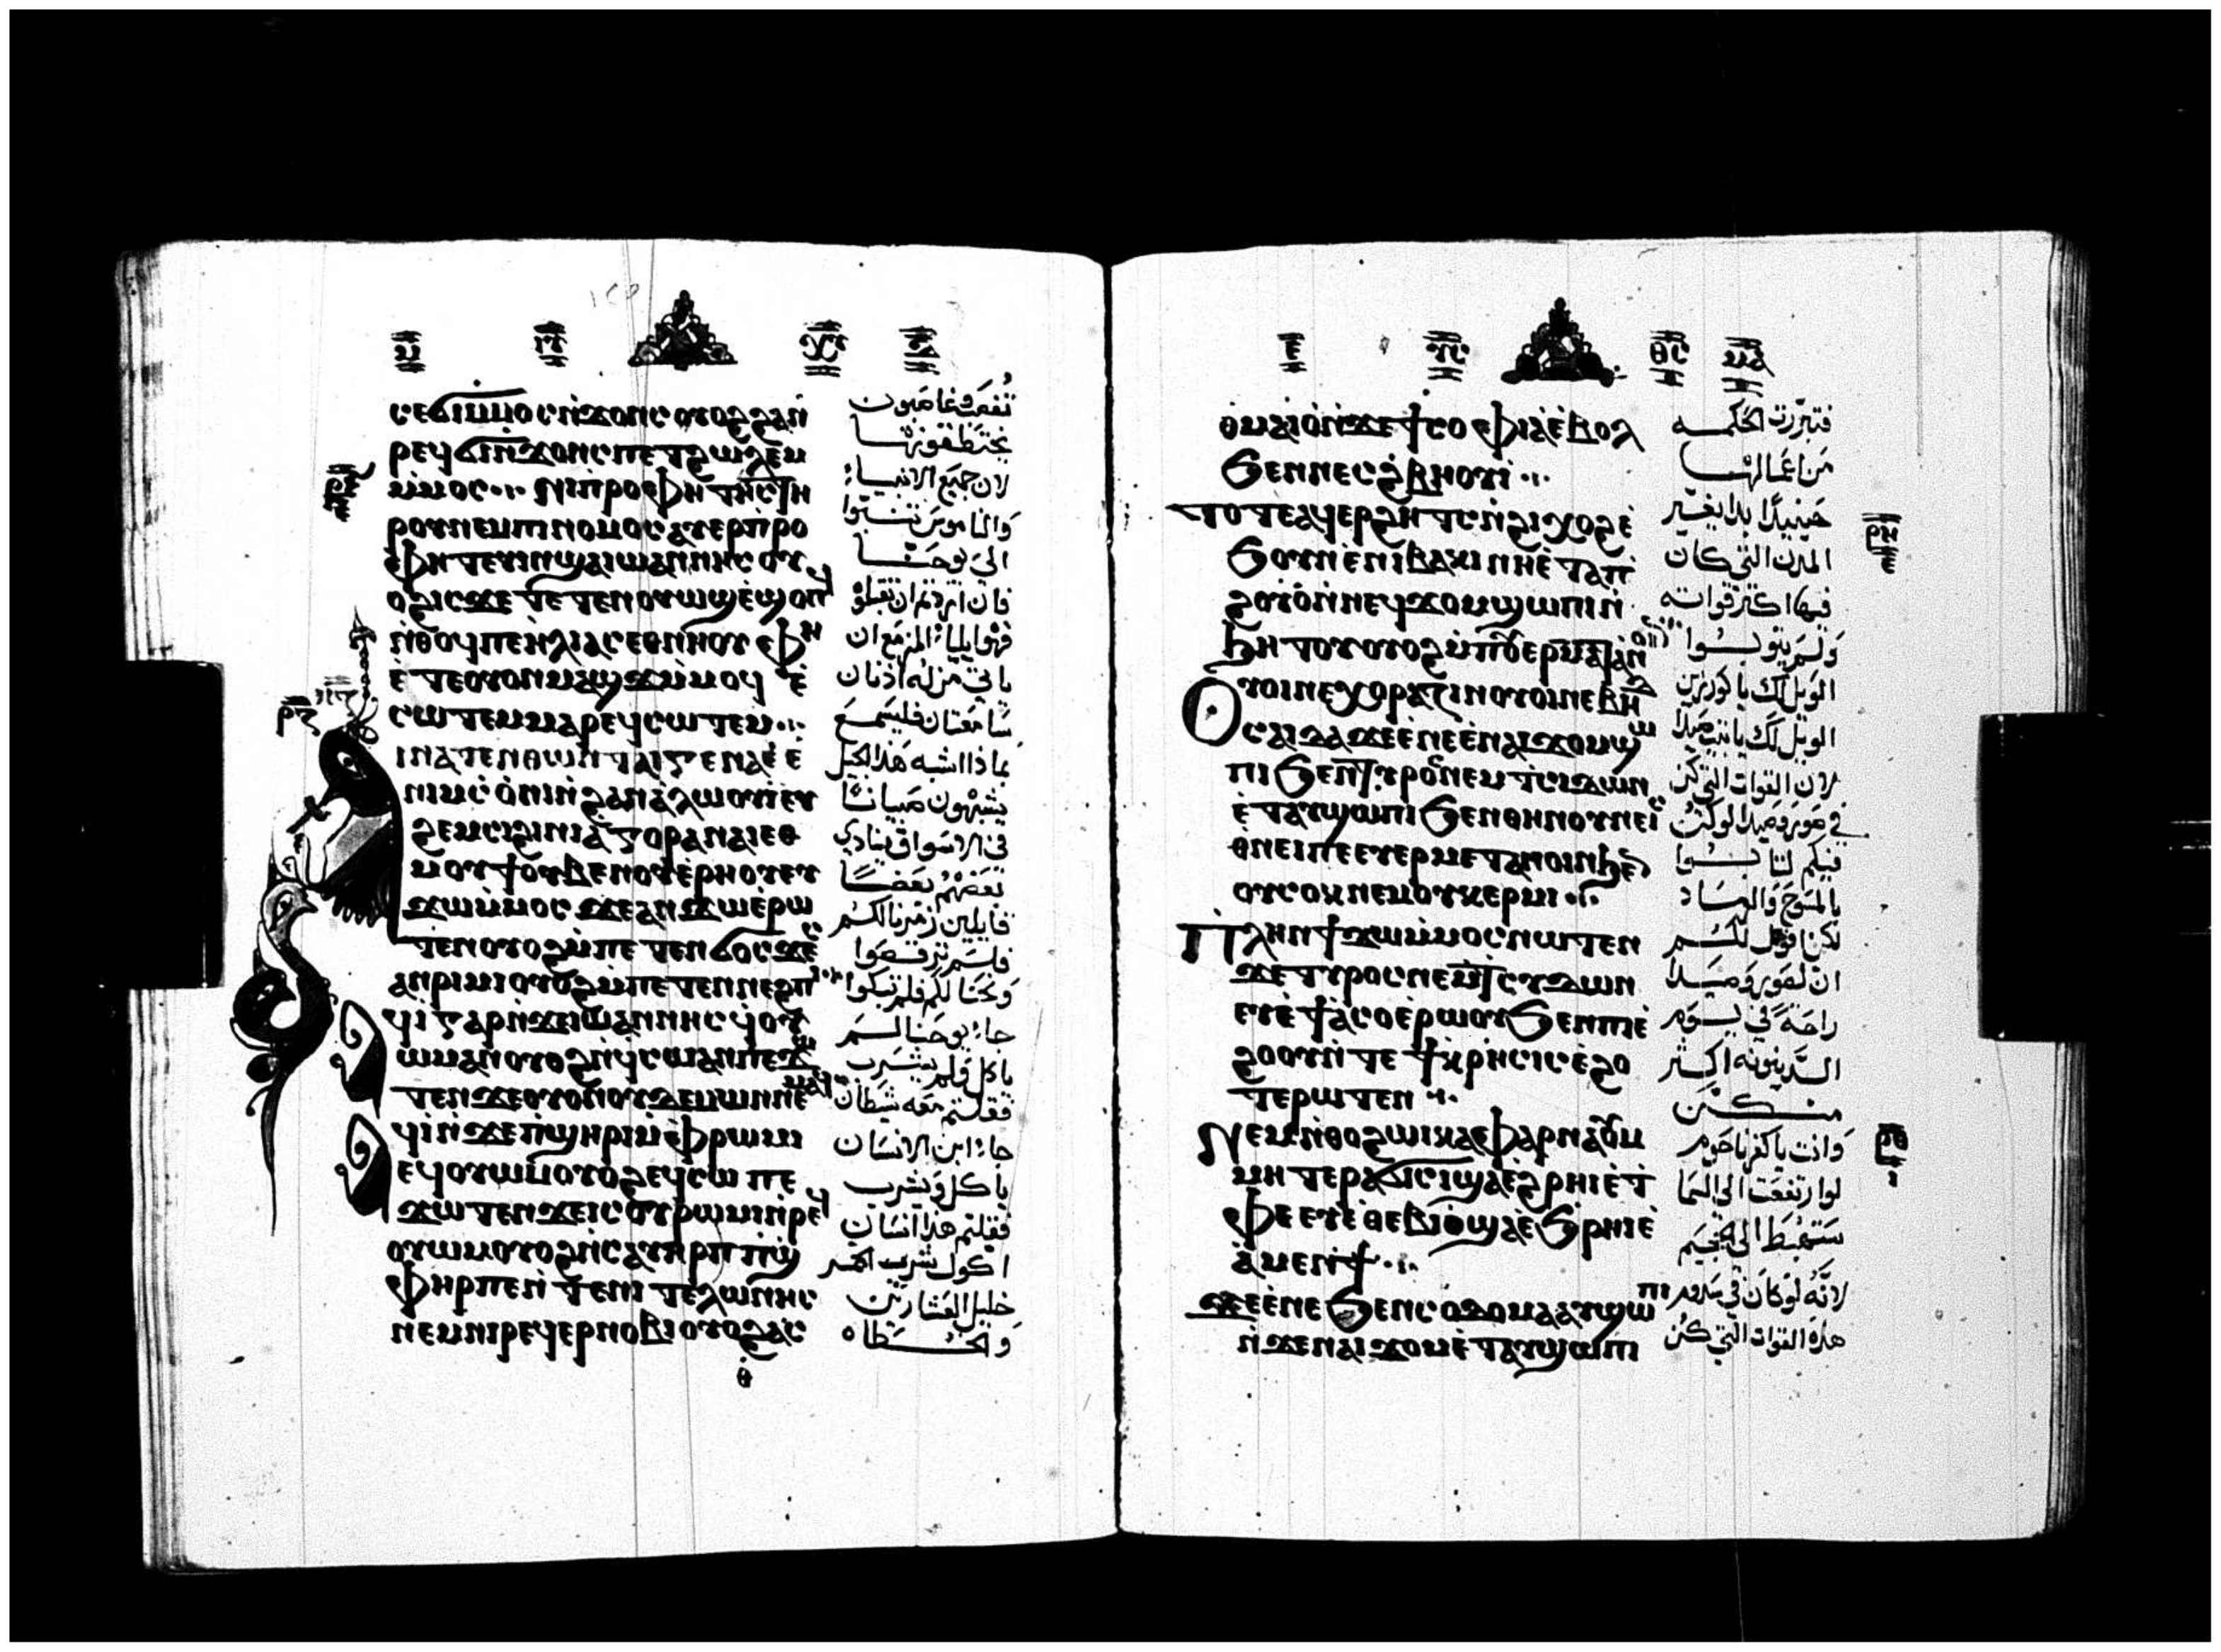 ⲥⲉϭⲓⲙⲙⲟⲥⲛ̇ϫⲟⲛⲥⲟⲩⲟϩϩⲁⲛ
ⲣⲉϥϭⲓⲛ̇ϫⲟⲛⲥⲡⲉⲧϩⲱⲗⲉⲙ
ⲙ̇ⲙⲟⲥ ⲛⲓⲡⲣⲟⲫⲏⲧⲏⲥⲧⲏ
ⲣⲟⲩⲛⲉⲙⲡⲓⲛⲟⲙⲟⲥⲁⲩⲉⲣⲡⲣⲟ
ⲫⲏⲧⲉⲩⲓⲛϣⲁⲓⲱⲁⲛⲛⲏⲥⲟⲩ
ⲟϩⲓⲥϫⲉⲧⲉⲧⲉⲛⲟⲩⲱϣⲉ̇ϣⲟⲡϥ
ⲛ̇ⲑⲟϥⲡⲉⲏⲗⲓⲁⲥⲉⲑⲛⲏⲟⲩ ⲫⲏ
ⲉ̇ⲧⲉⲟⲩⲟⲛⲙⲁϣϫⲙ̇ⲙⲟϥ ⲉ̇
ⲥⲱⲧⲉⲙⲙⲁⲣⲉϥⲥⲱⲧⲉⲙ
ⲓⲛⲁⲧⲉⲛⲑⲱⲛⲧⲁⲓⲅⲉⲛⲉⲁ̇ⲉ̇
ⲛⲓⲙⲥⲟ̇ⲛⲓⲛ̇ϩⲁⲛⲁ̇ⲗⲱⲟⲩⲓ̇ⲉⲩ
ϩⲉⲙⲥⲓϩⲓⲛⲓⲁ̇ⲅⲟⲣⲁⲛⲁⲓⲉⲑ
ⲙⲟⲩϯⲟⲩⲃⲉⲛⲟⲩⲉ̇ⲣⲏⲟⲩⲉⲩ
ϫⲱⲙ̇ⲙⲟⲥϫⲉⲁⲛϫⲱⲉ̇ⲣⲱ
ⲧⲉⲛⲟⲩⲟϩⲙ̇ⲡⲉⲧⲉⲛϭⲟⲥϫⲉⲥ
ⲁⲛⲣⲓⲙⲓⲟⲩⲟϩⲙ̇ⲡⲉⲧⲉⲛⲛⲉϩⲡⲓ
ϥⲓ̇ⲅⲁⲣⲛ̇ϫⲉⲓⲱⲁⲛⲛⲏⲥϥⲟⲩ
ⲱⲙⲁⲛⲟⲩⲟϩⲛ̇ϥⲥⲱⲁⲛⲡⲉϫⲱ
ⲧⲉⲛϫⲉⲟⲩⲟⲛⲟⲩⲇⲉⲙⲱⲛⲛⲉⲙⲁϥ
ϥⲓ̇ⲛ̇ϫⲉⲡ̇ϣⲏⲣⲓⲙ̇ⲫⲣⲱⲙⲓ
ⲉϥⲟⲩⲱⲙⲟⲩⲟϩⲉϥⲥⲱ ⲡⲉ
ϫⲱⲧⲉⲛϫⲉⲓⲥⲟⲩⲣⲱⲙⲓⲛ̇ⲣⲉϥ
ⲟⲩⲱⲙⲟⲩⲟϩⲛ̇ⲥⲁⲩⲏⲣⲡⲡ̇ϣ
ⲫⲏⲣⲡⲉⲛ̇ⲧⲉⲛⲓⲧⲉⲗⲱⲛⲏⲥ
ⲛⲉⲙⲛⲓⲣⲉϥⲉⲣⲛⲟⲃⲓⲟⲩⲟϩⲁⲥ
ⲑ
تُغصَب وغاصبون
يختطفونها
لان جميع الانبياء
والناموس تنبوا
الى يوحنا
فان اردتم ان تقبلوا
فهو ايلياء المزمع ان
ياتي من له اذنان
سامعتان فليسمع
بماذا اشبه هذا الجيل
يشبهون صبيانًا
في الاسواق ينادي
بعضهم بعضًا
قايلين زمرنا لكم
فلم ترقصوا
ونحنا لكم فلم تبكوا
جاء يوحنا لم
ياكل ولم يشرب
فقلتم معه شيطان
جاء ابن الانسان
ياكل ويشرب
فقلتم هذا انسان
اكول شريب الخمر
خليل العشارين
والخطاه
ⲑⲙⲁⲓⲟ̇ⲛ̇ϫⲉϯⲥⲟⲫⲓⲁⲉ̇ⲃⲟⲗ
ϧⲉⲛⲛⲉⲥϩ̇ⲃⲏⲟⲩⲓ
ⲧⲟⲧⲉⲁϥⲉⲣϩⲏⲧⲥⲛ̇ϩⲓϣⲟϣⲉ̇
ϧⲟⲩⲛⲉⲛⲓⲃⲁⲕⲓⲛⲏⲉ̇ⲧⲁⲡ
ϩⲟⲩⲟ̇ⲛ̇ⲛⲉϥϫⲟⲙϣⲱⲡⲓⲛ̇
ϧⲏⲧⲟⲩⲟⲩⲟϩⲙ̇ⲡⲟⲩⲉⲣⲙⲉⲧⲁⲛⲟⲓⲛ
ⲟⲩⲟⲓⲛⲉⲭⲟⲣⲁⲍⲓⲛⲟⲩⲟⲓⲛⲉⲃⲏⲇ
ⲥⲁⲓⲇⲁϫⲉⲉ̇ⲛⲉⲉ̇ⲛⲁⲓϫⲟⲙϣⲱ
ⲡⲓϧⲉⲛⲧⲩⲣⲟⲥⲛⲉⲙⲧⲥⲓⲇⲱⲛ
ⲉ̇ⲧⲁⲩϣⲱⲡⲓϧⲉⲛⲑⲏⲛⲟⲩⲛⲉⲓⲥ
ϫⲛⲉⲓⲡⲉⲉⲩⲉⲣⲙⲉⲧⲁⲛⲟⲓⲛϧⲉⲛ
ⲟⲩⲥⲟⲕⲛⲉⲙⲟⲩⲕⲉⲣⲙⲓ
ⲡⲗⲏⲛϯϫⲱⲙ̇ⲙⲟⲥⲛⲱⲧⲉⲛ
ϫⲉⲧⲩⲣⲟⲥⲛⲉⲙⲧⲥⲩⲇⲱⲛ
ⲉⲩⲉ̇ϯⲁ̇ⲥⲟⲉ̇ⲣⲱⲟⲩϧⲉⲛⲡⲓⲉ̇
ϩⲟⲟⲩⲛ̇ⲧⲉϯⲕ̇ⲣⲏⲥⲓⲥⲉ̇ϩⲟ
ⲧⲉⲣⲱⲧⲉⲛ
ⲛⲉⲙⲛ̇ⲑⲟϩⲱⲓⲕⲁⲫⲁⲣⲛⲁⲟⲩⲙ
ⲙⲏⲧⲉⲣⲁϭⲓⲥⲓϣⲁⲉ̇ϩⲣⲏⲓⲉ̇ⲧ
ⲫⲉⲉⲩⲉ̇ⲑⲉⲃⲓⲟϣⲁⲉ̇ϧⲣⲏⲓⲉ̇
ⲁ̇ⲙⲉⲛϯ
ϫⲉⲉ̇ⲛⲉϧⲉⲛⲥⲟⲇⲟⲙⲁⲁⲩϣⲱⲡⲓ
ⲛ̇ϫⲉⲛⲁⲓϫⲟⲙⲉ̇ⲧⲁⲩϣⲱⲡⲓ
فتبررت الحكمه
من اعمالها
حينيذٍ ابدا يعيّر
المدن التي كان
فيها اكثر قواته
ولم يتوبوا
الويل لك يا كورزين
الويل لك يا بيت صيدا
لان القوات التي كن
في صور وصيدا لو كنّ
فيكم لتابوا
بالمسوح والرماد
لكن اقول لكم
ان لصور وصيدا
راحة في يوم
الدينونه اكثر
منكن
وانت يا كفرناحوم
لو ارتفعت الى السما
ستهبط الى الجحيم
لانه لو كان في سدوم
هذه القوات التي كن